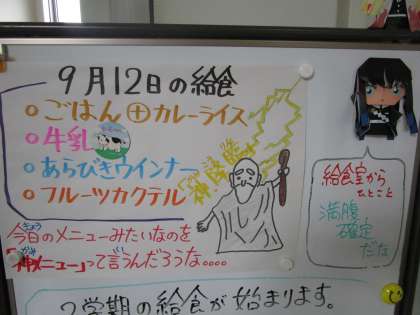 9月12日の給食
ごはん⊕カレーライス
牛乳
あらびきウインナー
フルーツカクテル
神降臨
今日のメニューみたいなのを
きょう
「神メニュー」って言うんだろうな。。。。
かみ
い
給食室から
ひとこと
満腹
確定
だな
2学期の給食が始まります。